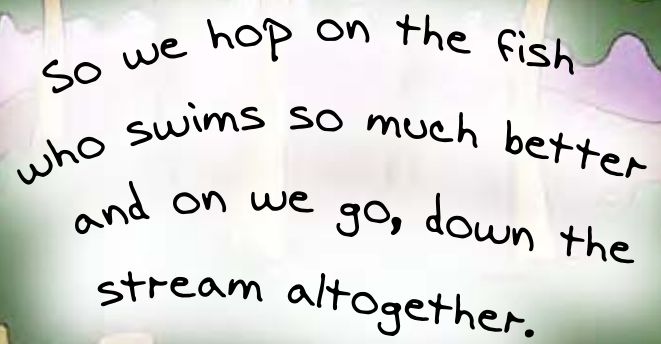 So we hop on the fish
who swims so much better
and on we go, down the
stream altogether.